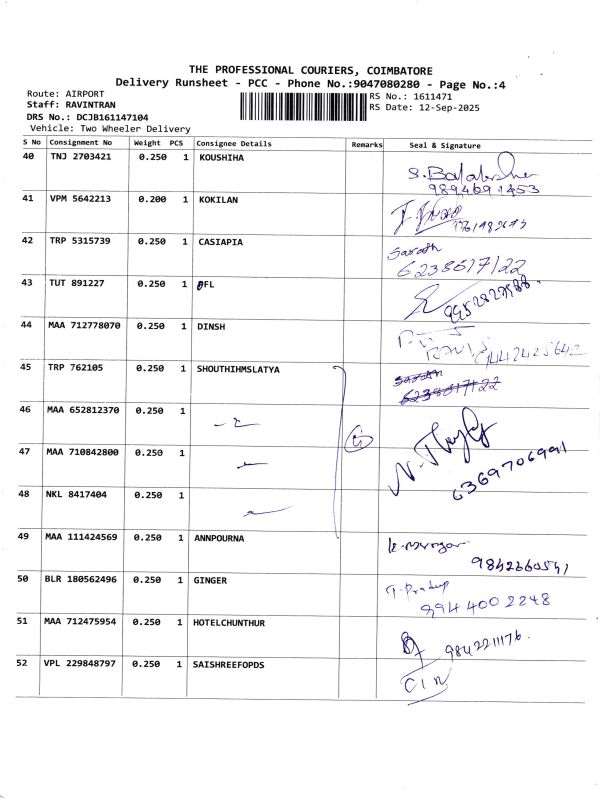 THE PROFESSIONAL COURIERS, COIMBATORE
Delivery Runsheet - PCC - Phone No.:9047080280 - Page No.:4
Route: AIRPORT
RS No.: 1611471
Staff: RAVINTRAN
RS Date: 12-Sep-2025
DRS No.: DCJB161147104
Vehicle: Two Wheeler Delivery
S No Consignment No Weight PCS Consignee Details Remarks Seal & Signature
40 TNJ 2703421 0.250 1 KOUSHIHA
9894691453
41 VPM 5642213 0.200 1 KOKILAN
42 TRP 5315739 0.250 1 CASIAPIA Sarath
6238617122
43 TUT 891227 0.250 1 DFL
44 MAA 712778070 0.250 1 DINSH
45 TRP 762105 0.250 1 SHOUTHIHMSLATYA Sarath
6238617122
46 MAA 652812370 0.250 1
47 MAA 710842800 0.250 1
6369706991
48 NKL 8417404 0.250 1
49 MAA 111424569 0.250 1 ANNPOURNA K. Murugan
9842660541
50 BLR 180562496 0.250 1 GINGER T. Pradeep
9944002248
51 MAA 712475954 0.250 1 HOTELCHUNTHUR
9842211176.
52 VPL 229848797 0.250 1 SAISHREEFOPDS